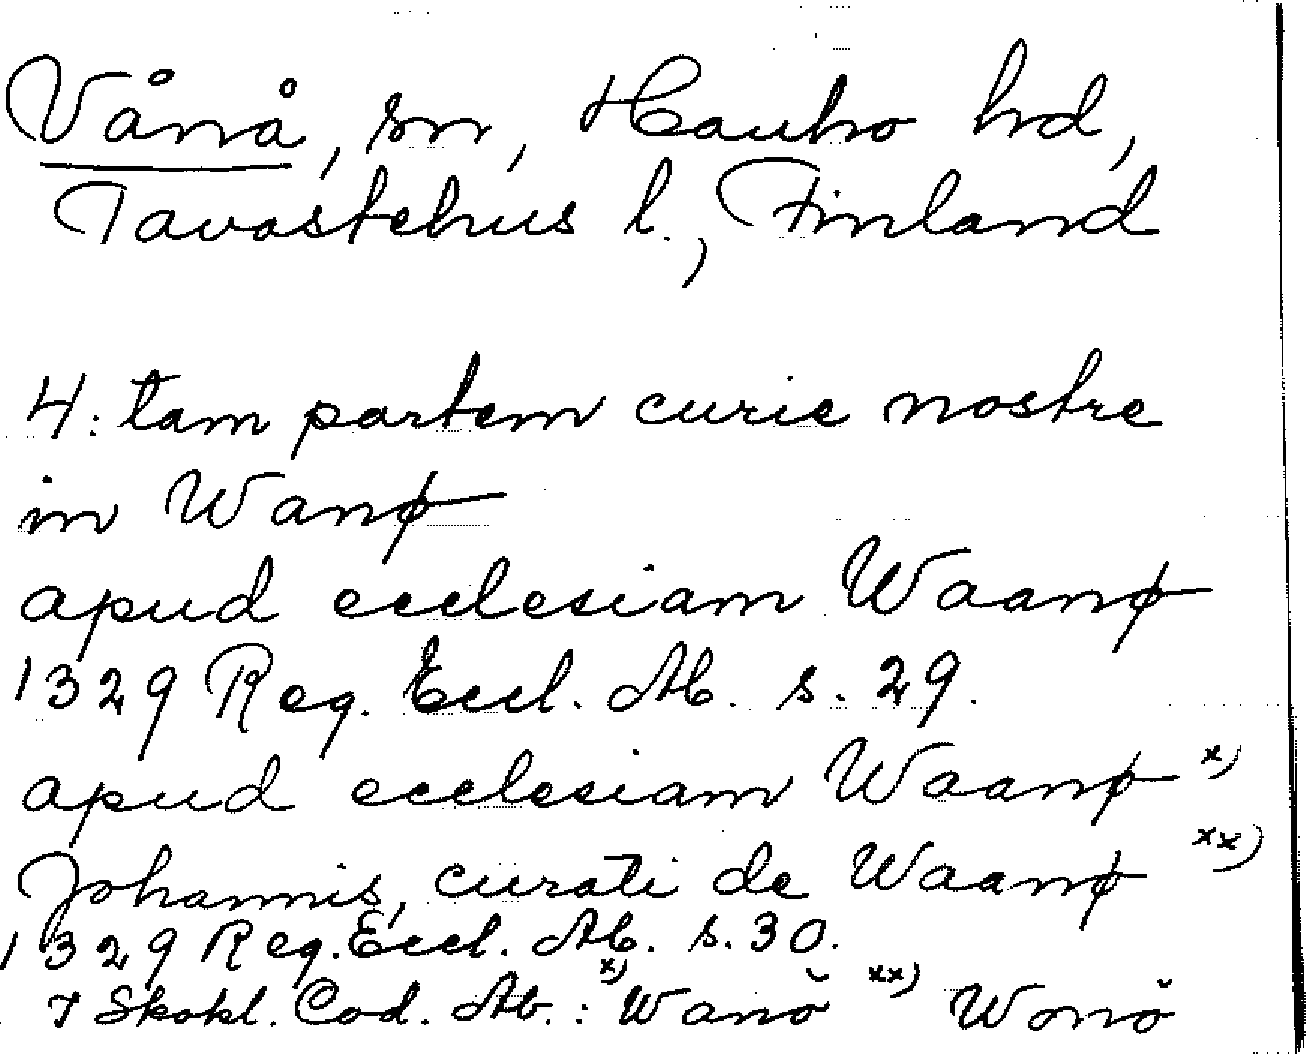 Vånå, sn, Hauho hd,
Tavastehus l., Finland
4: tam partem curie nostre
in Wanø
apud ecclesiam Waanø
1329 Reg. Eccl. Ab. s. 29.
apud ecclesiam Waanø x)
Johannis, curati de Waanø xx)
1329 Reg. Eccl. Ab. s. 30.
I Skokl. Cod. Ab.: x) Wanŏ xx) Wonŏ